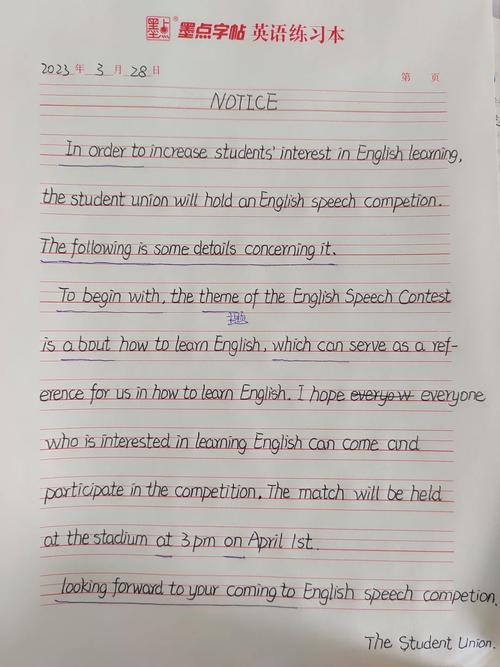 墨点 墨点字帖 英语练习本
2023年 3月28日
第 页
NOTICE
In order to increase students' interest in English learning,
the student union will hold an English speech competion.
The following is some details concerning it.
To begin with, the theme of the English Speech Contest
主题
is about how to learn English, which can serve as a ref-
erence for us in how to learn English. I hope everyow everyone
who is interested in learning English can come and
participate in the competition. The match will be held
at the stadium at 3 pm on April 1st.
looking forward to your coming to English speech competion.
The Student Union.